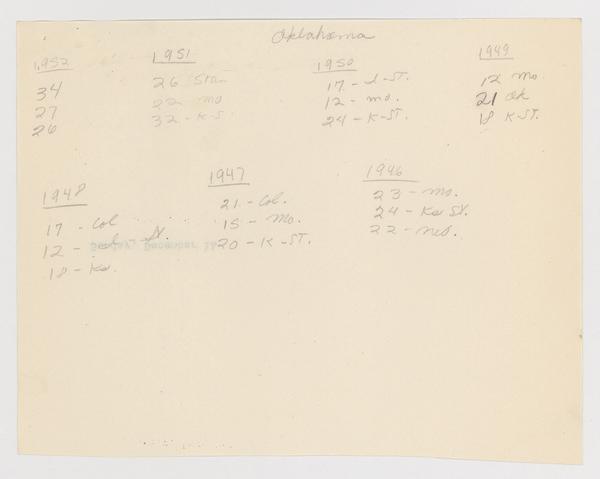 Oklahoma
1952
34
27
26
1951
26
22 - mo
32 - K-S
1950
17 - I-ST.
12 - mo.
24 - K-ST.
1949
12 mo
21 Ok
18 K-ST.
1948
17 - Col
12 - St.
18 - Ka.
1947
21 - Col.
15 - Mo.
20 - K-ST.
1946
23 - mo.
24 - Ka St.
22 - neb.